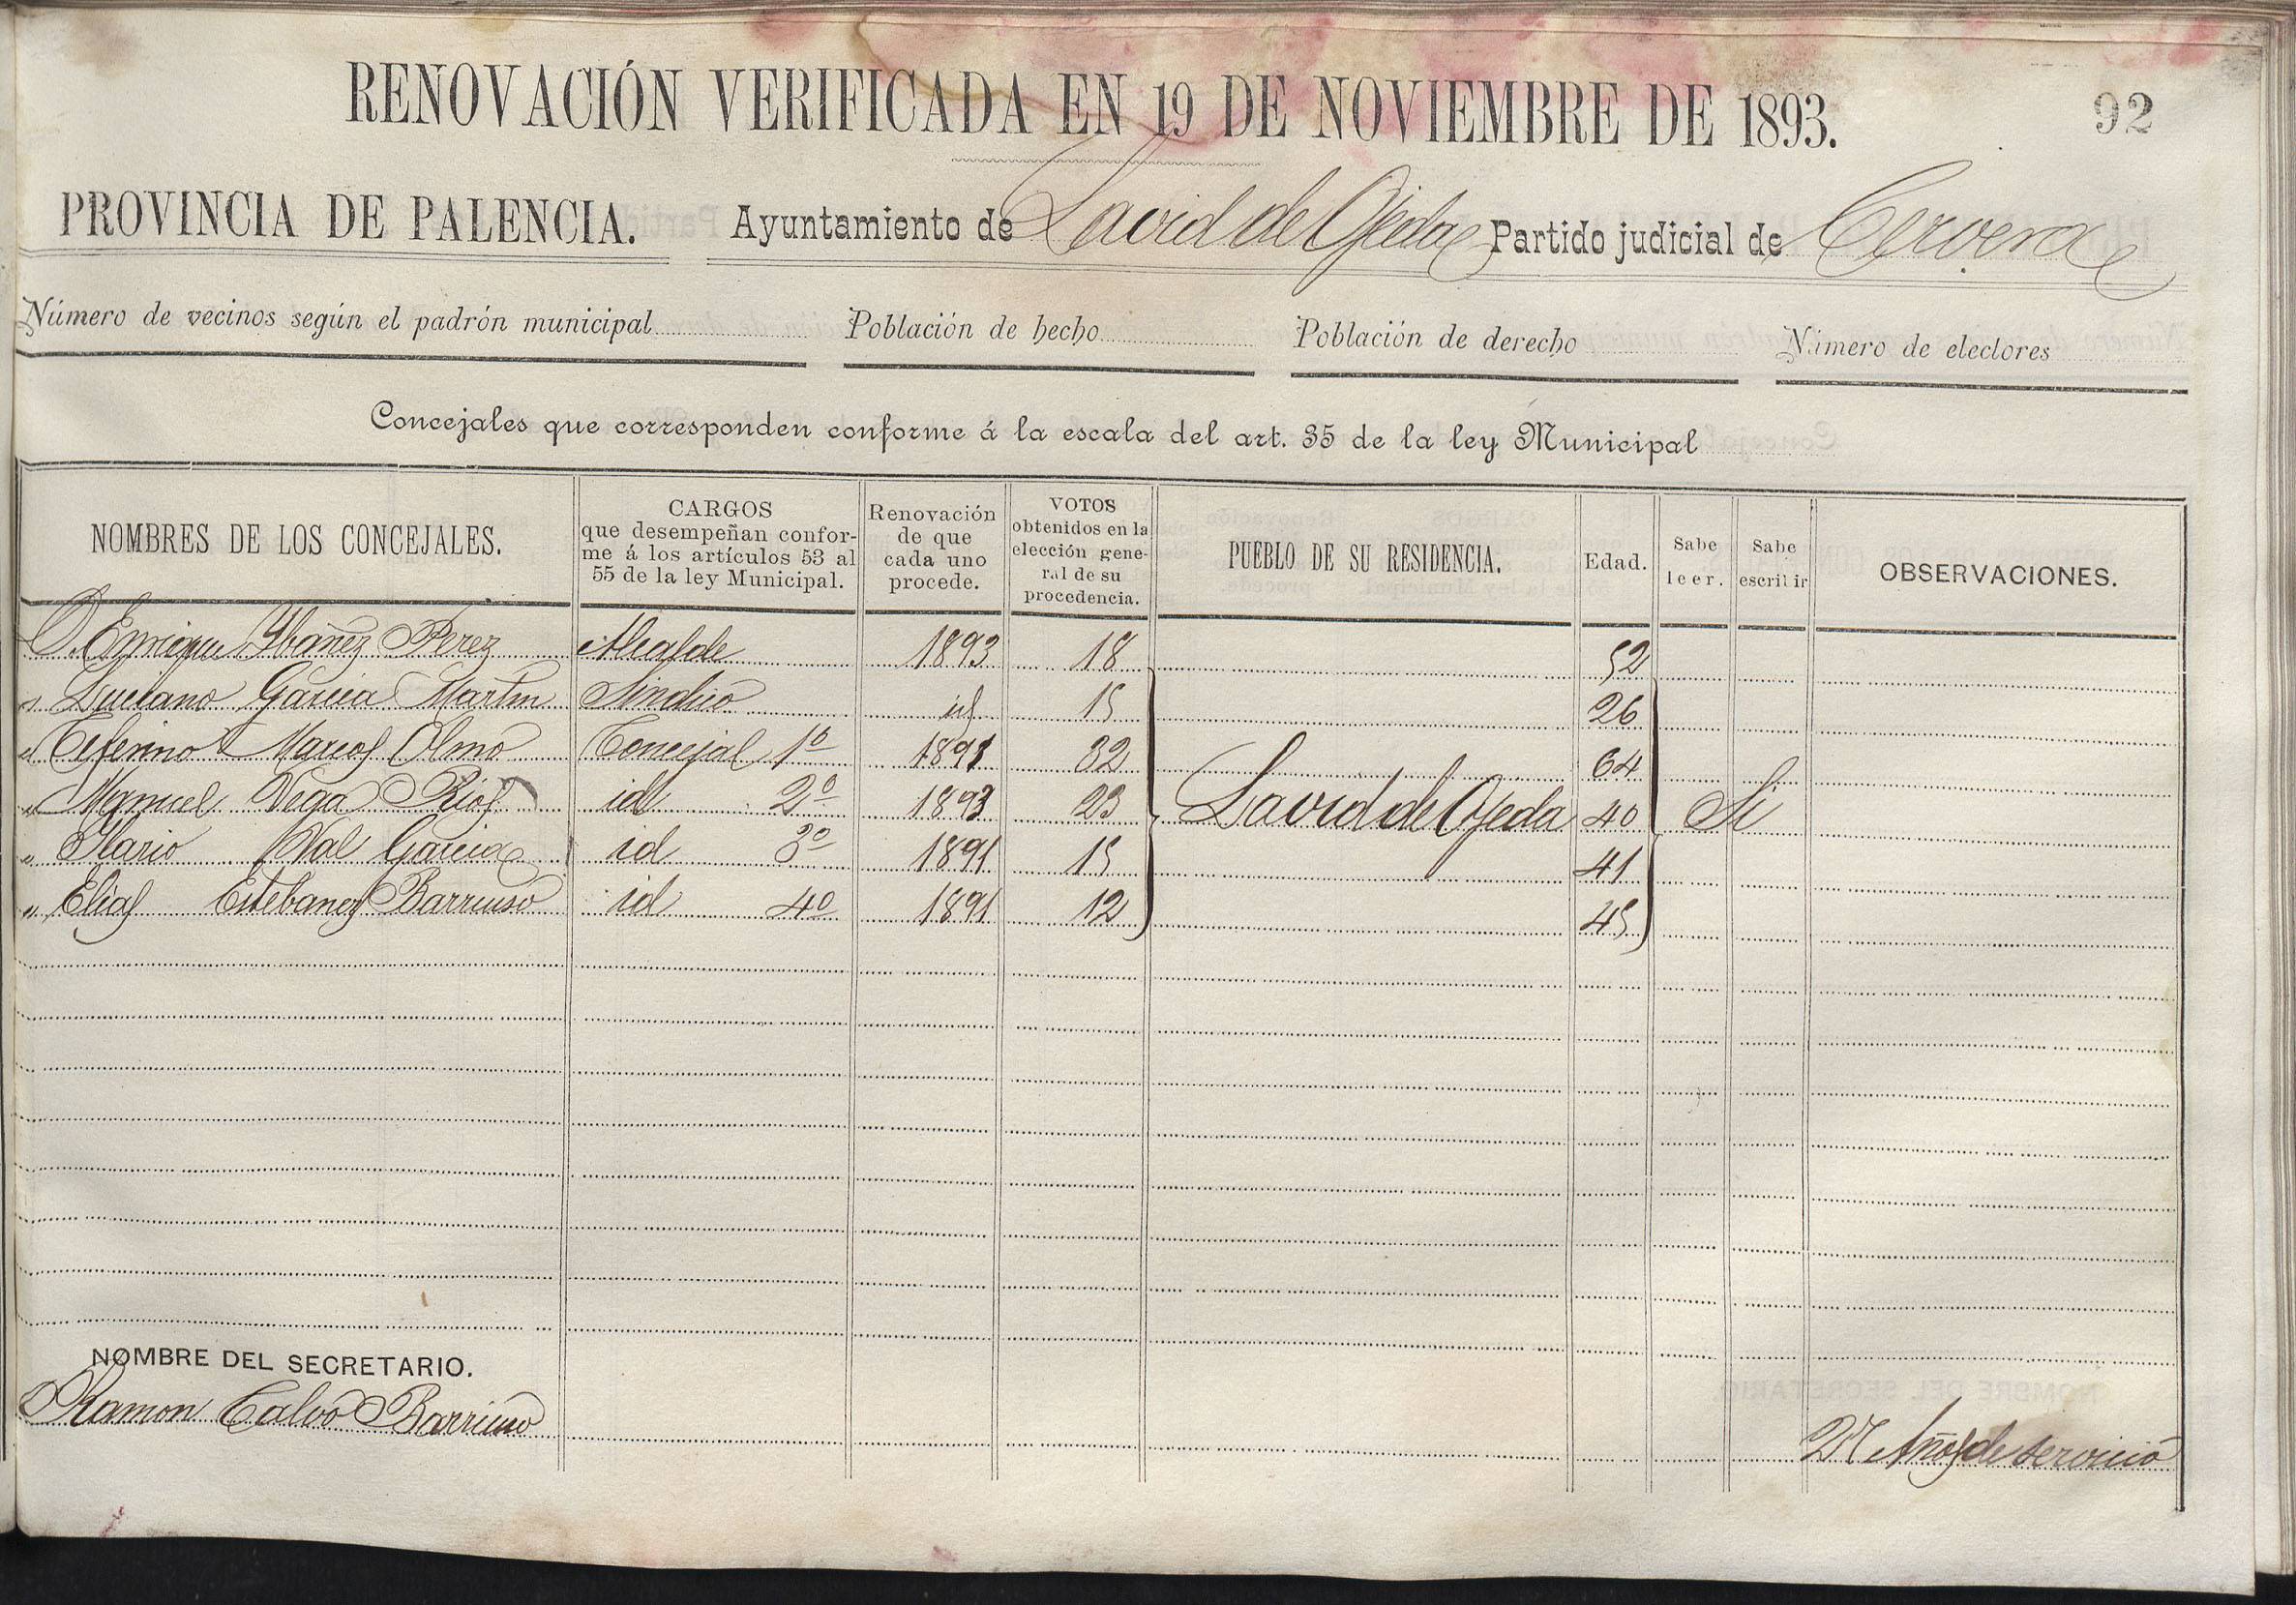 RENOVACIÓN VERIFICADA EN 19 DE NOVIEMBRE DE 1893.
92
PROVINCIA DE PALENCIA. Ayuntamiento de Lavid de Ojeda Partido judicial de Cervera
Número de vecinos según el padrón municipal Población de hecho Población de derecho Número de electores
Concejales que corresponden conforme á la escala del art. 35 de la ley Municipal
NOMBRES DE LOS CONCEJALES.
CARGOS
que desempeñan confor-
me á los artículos 53 al
55 de la ley Municipal.
Renovación
de que
cada uno
procede.
VOTOS
obtenidos en la
elección gene-
ral de su
procedencia.
PUEBLO DE SU RESIDENCIA.
Edad.
Sabe
leer.
Sabe
escribir
OBSERVACIONES.
D. Enrique Ybañez Perez Alcalde 1893 18 52
" Luciano Garcia Martin Sindico id 15 26
" Ceferino Marcos Olmo Concejal 1º 1891 32 64
" Manuel Vega Rios id 2º 1893 23 Lavid de Ojeda 40 Si
" Ylario Val Garcia id 3º 1891 15 41
" Elias Estebanez Barriuso id 4º 1891 12 45
NOMBRE DEL SECRETARIO.
D Ramon Calvo Barriuso Años de servicio